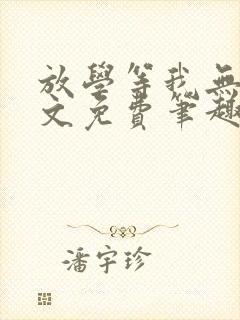 放學等我無
文免費筆趣
潘宇珍